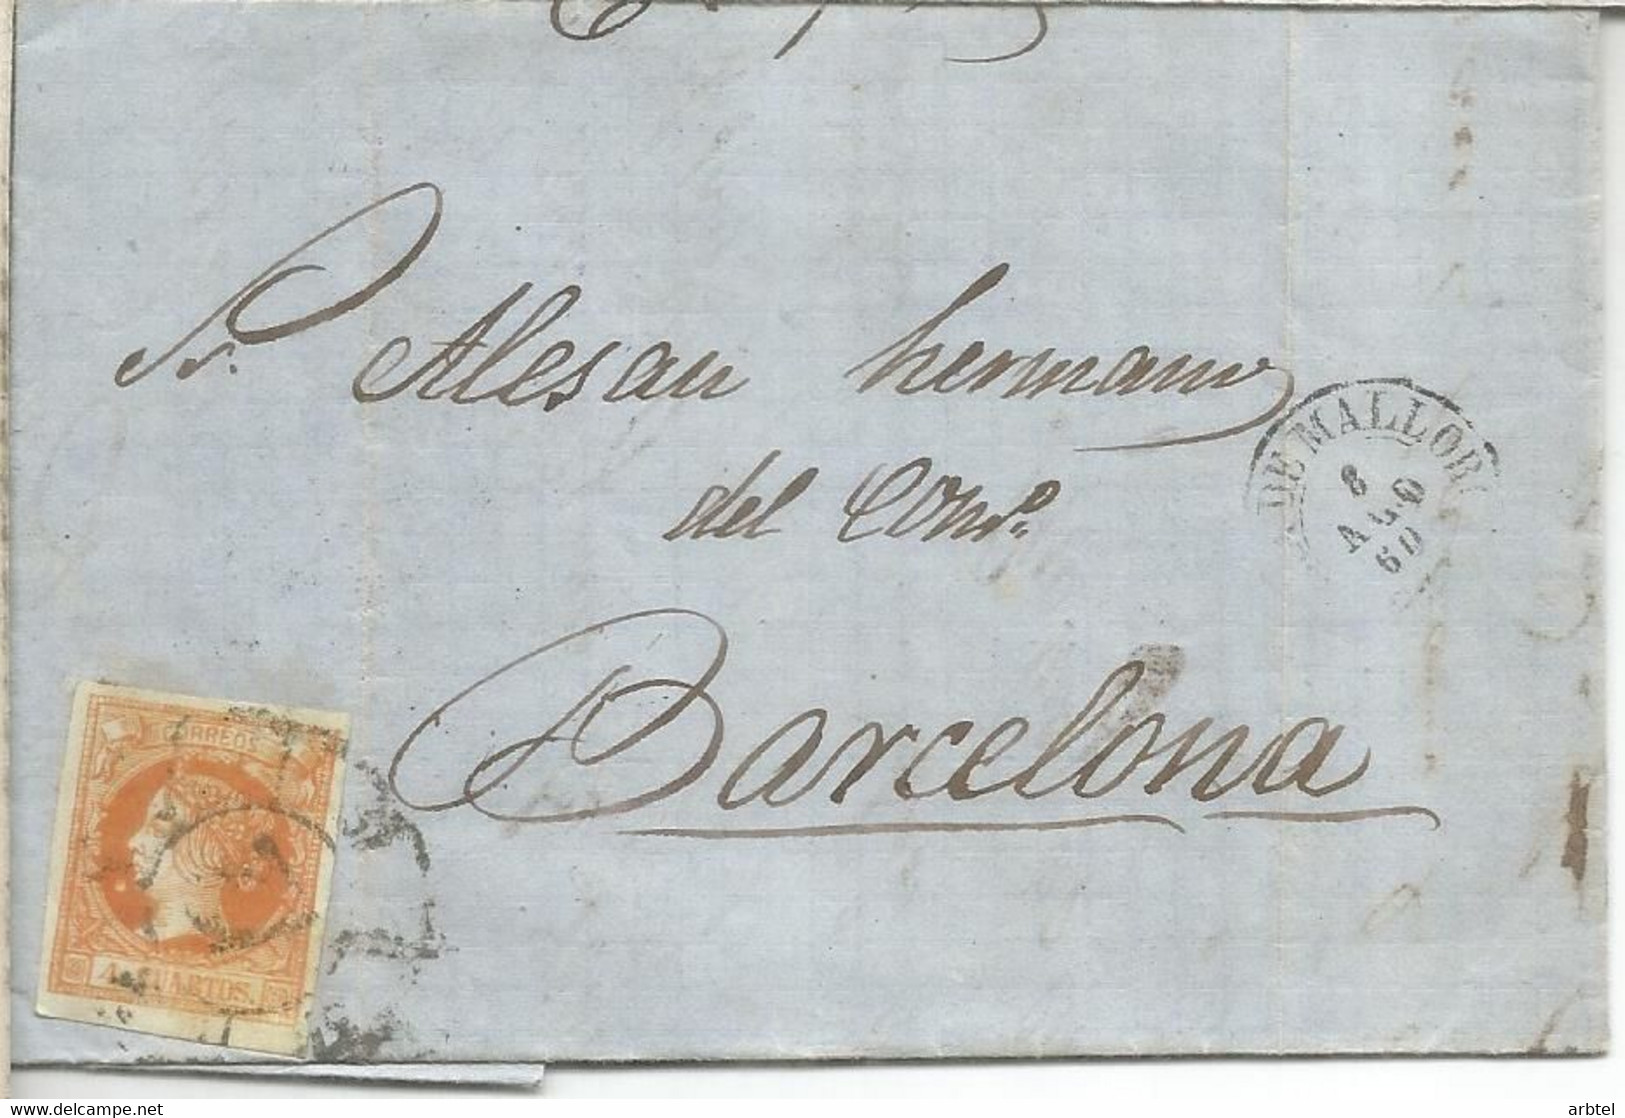 Sr. Alesan hermano
del Comº.
Barcelona
DE MALLOR
8
AGO
60
CORREOS
4 CUARTOS.
www.delcampe.net
arbtel